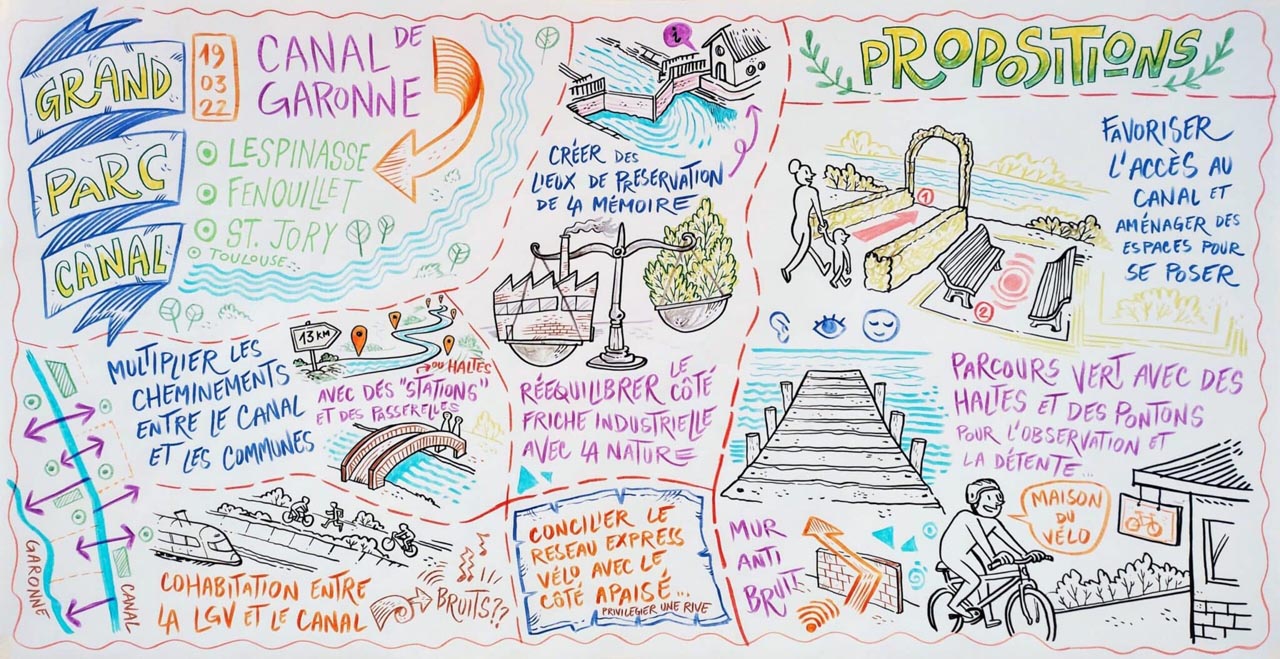 GRAND
PARC
CANAL
19
03
22
CANAL DE
GARONNE
LESPINASSE
FENOUILLET
ST. JORY
TOULOUSE...
MULTIPLIER LES
CHEMINEMENTS
ENTRE LE CANAL
ET LES COMMUNES
13 KM
OU HALTES
AVEC DES "STATIONS"
ET DES PASSERELLES
GARONNE
CANAL
COHABITATION ENTRE
LA LGV ET LE CANAL
BRUITS??
i
CRÉER DES
LIEUX DE PRESERVATION
DE LA MÉMOIRE
RÉÉQUILIBRER LE CÔTÉ
FRICHE INDUSTRIELLE
AVEC LA NATURE
CONCILIER LE
RESEAU EXPRESS
VÉLO AVEC LE
CÔTÉ APAISÉ...
PRIVILEGIER UNE RIVE
PROPOSITIONS
FAVORISER
L'ACCÈS AU
CANAL ET
AMÉNAGER DES
ESPACES POUR
SE POSER
1
2
PARCOURS VERT AVEC DES
HALTES ET DES PONTONS
POUR L'OBSERVATION ET
LA DÉTENTE...
MUR
ANTI
BRUIT
MAISON
DU
VÉLO